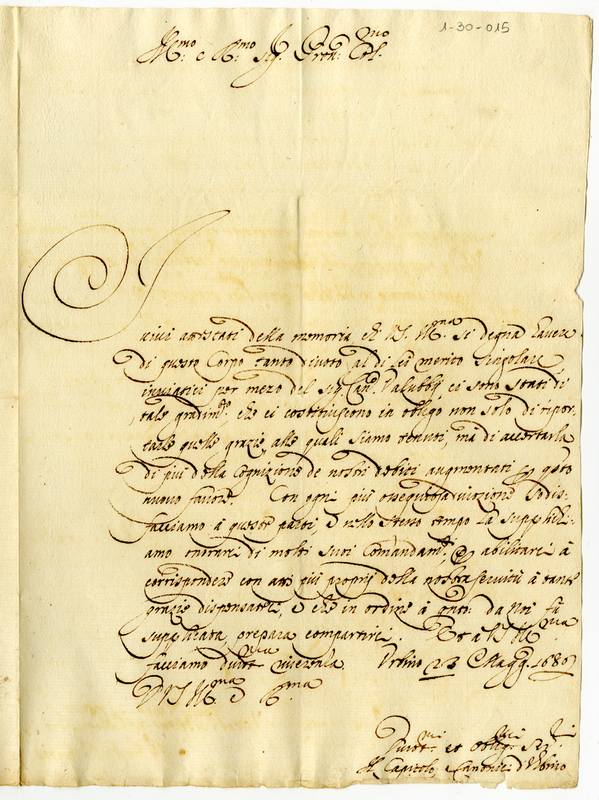 1-30-015
Ill.mo e R.mo Sig. Pron. Col.mo
I vivi attestati della memoria che V.S. Ill.ma si degna havere
di questo Corpo tanto divoto al di lei merito singolare
inviatici per mezo del Sig. Can. Valubij, ci sono stati di
tale gradim.to che ci costituiscono in obligo non solo di ripor-
tarle quelle grazie, alle quali siamo tenuti, ma di accertarla
di più della Cognizione de nostri debiti augmentati p q.sto
nuovo favore. Con ogni più ossequiosa divozione sodis-
facciamo à queste parti, e nello stesso tempo La supplichi-
amo onorarci di molti suoi Comandam.ti p abilitarci à
corrispondere con atti più proprij della nostra servitù à tante
grazie dispensateci, e che in ordine à q.nto da Noi fù
supplicata, prepara compartirci. Et a V.S. Ill.ma
facciamo div.ma riverenza. Urbino 23 Magg. 1689
Di V.S. Ill.ma e R.ma
Divot.mi et Oblig.mi Ser.ri
Il Capitolo, e Canonici d'Urbino